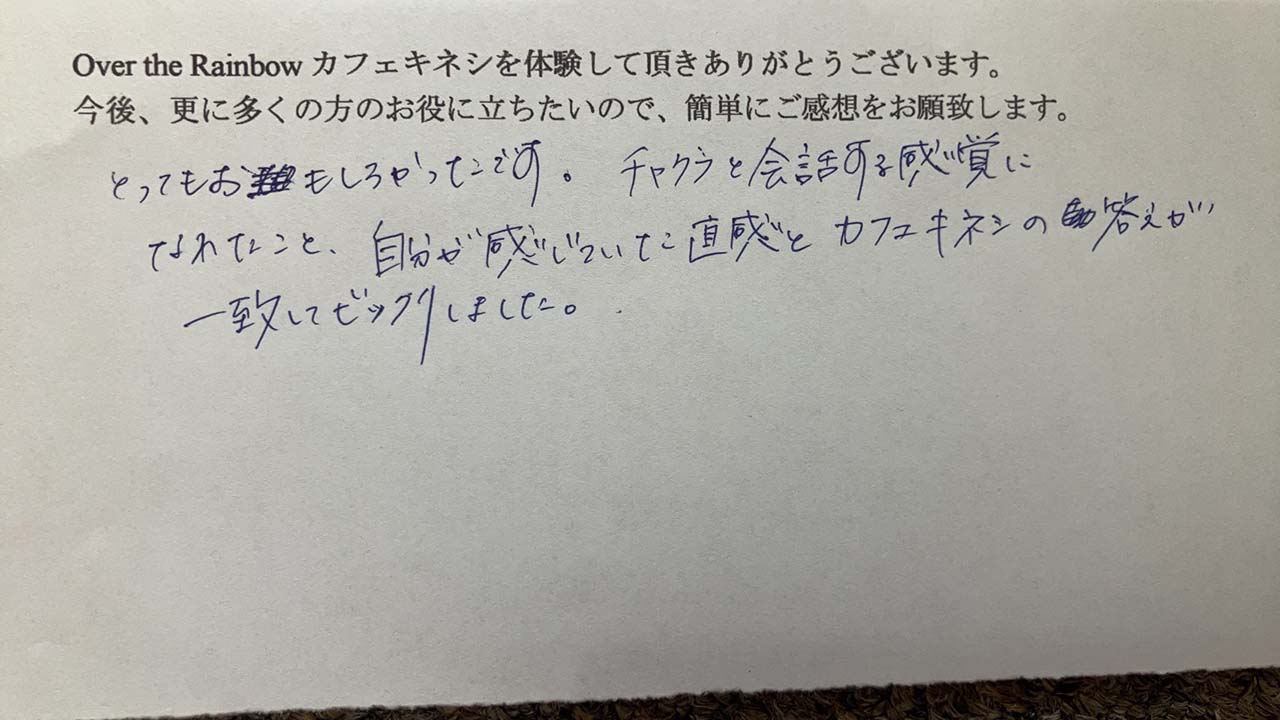 Over the Rainbow カフェキネシを体験して頂きありがとうございます。
今後、更に多くの方のお役に立ちたいので、簡単にご感想をお願致します。
とってもおもしろかったです。チャクラと会話する感覚に
なれたこと、自分が感じていた直感とカフェキネシの答えが
一致してビックリしました。